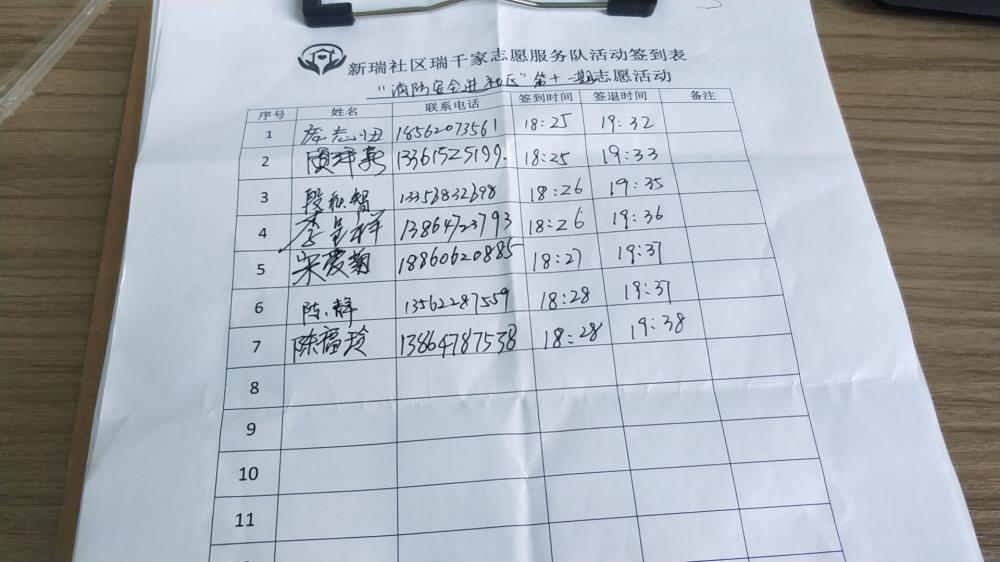 新瑞社区瑞千家志愿服务队活动签到表
"消防安全进社区"第十一期志愿活动
序号 姓名 联系电话 签到时间 签退时间 备注
1 18562073561 18:25 19:32
2 13361525199 18:25 19:33
3 段 智 13356832698 18:26 19:35
4 李呈祥 13864723793 18:26 19:36
5 宋爱菊 18860620885 18:27 19:37
6 陈静 13562287559 18:28 19:37
7 陈福玲 13864787538 18:28 19:38
8
9
10
11